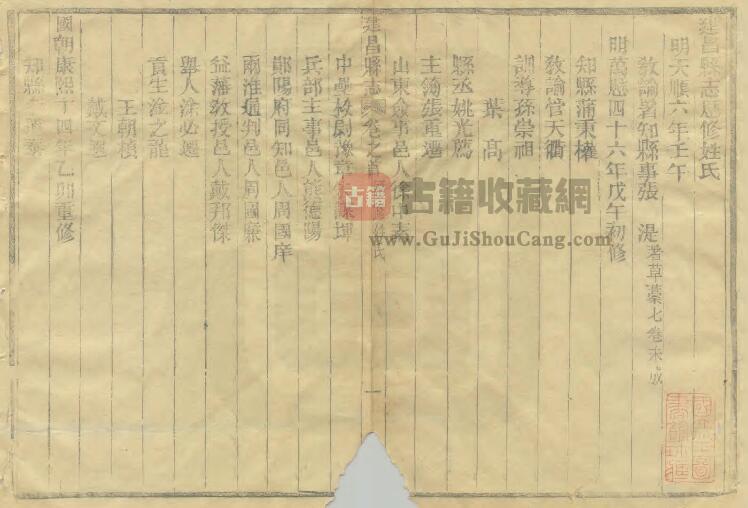 建昌縣志歷修姓氏
明天順六年壬午
敎諭署知縣事張 湜 著草藁七卷未成
明萬厯四十六年戊午初修
知縣蒲秉權
敎諭管天衢
訓導孫崇祖
葉 高
縣丞姚光廌
主簿張重遇
山東僉事邑人徐中素
建昌縣志 卷之首 氏 一
中
兵部主事邑人熊德陽
鄖陽府同知邑人周國庠
兩淮通判邑人周國
益藩敎授邑人戴邦傑
舉人淦必選
貢生淦之龍
王朝楨
戴文選
國朝康熙十四年乙卯重修
知縣
古籍
古籍收藏網
www.GuJiShouCang.com